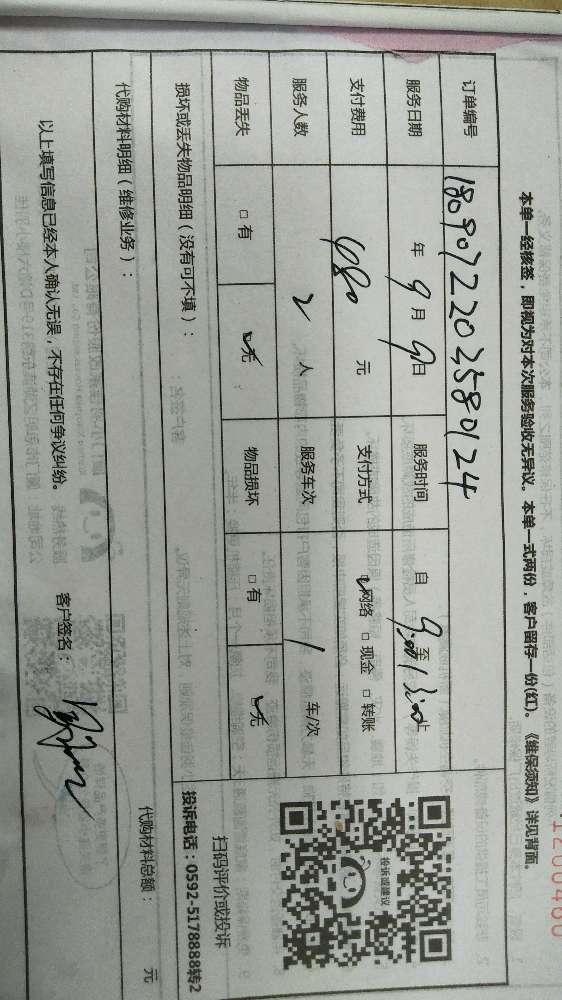 1200480
本单一经核签，即视为对本次服务验收无异议。本单一式两份，客户留存一份(红)。《维保须知》详见背面。
订单编号 1809072203580124
服务日期 年 9 月 9 日 服务时间 自 9:00 至 13:00 止
支付费用 680 元 支付方式 ☑网络 □现金 □转账
服务人数 2 人 服务车次 1 车/次
物品丢失 □有 ☑无 物品损坏 □有 ☑无
投诉或建议
扫码评价或投诉
投诉电话：0592-5178888转2
损坏或丢失物品明细（没有可不填）：
代购材料明细（维修业务）：
代购材料总额： 元
以上填写信息已经本人确认无误，不存在任何争议纠纷。 客户签名：